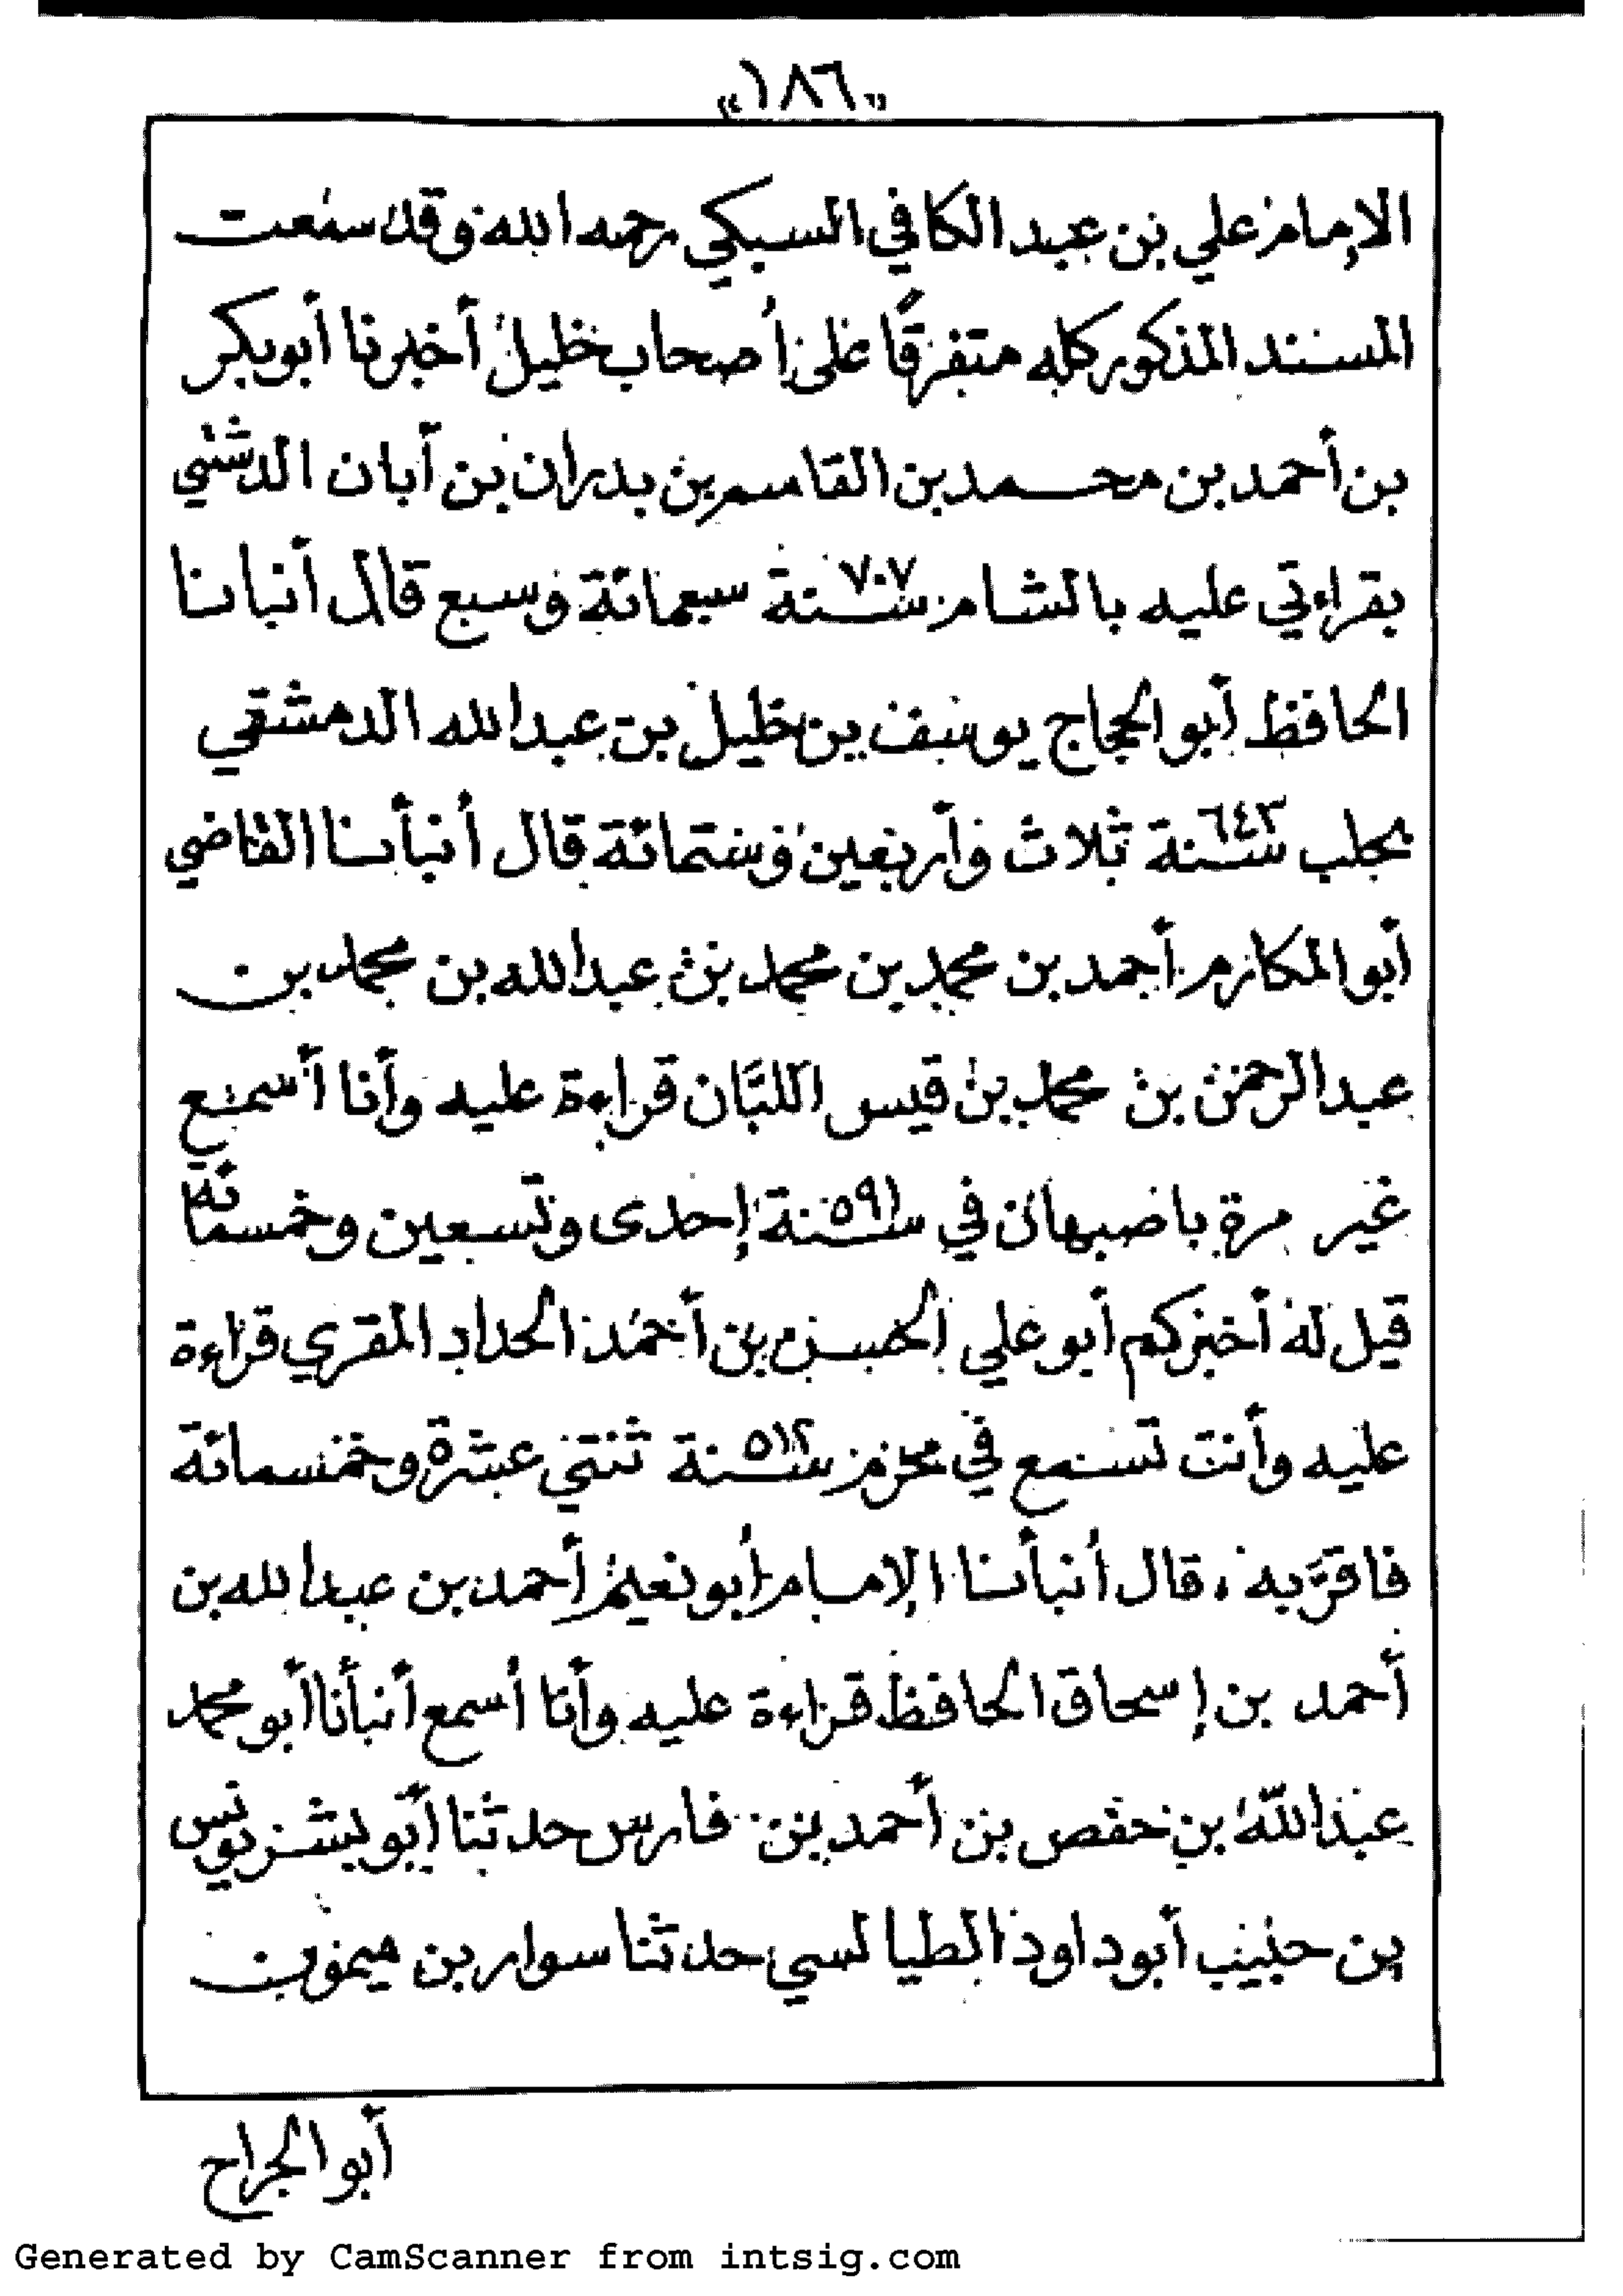 «١٨٦»
الإمام علي بن عبد الكافي السبكي رحمه الله وقد سمعت
المسند المذكور كله متفرقًا على أصحاب خليل أخبرنا أبو بكر
بن أحمد بن محمد بن القاسم بن بدران بن أبان الدشتي
بقراءتي عليه بالشام سنة ٧٠٧ سبعمائة وسبع قال أنبانا
الحافظ أبو الحجاج يوسف بن خليل بن عبد الله الدمشقي
بحلب سنة ٦٤٣ ثلاث وأربعين وستمائة قال أنبأنا القاضي
أبو المكارم أحمد بن محمد بن محمد بن عبد الله بن محمد بن
عبد الرحمن بن محمد بن قيس اللبَّان قراءة عليه وأنا أسمع
غير مرة باصبهان في سنة ٥٩١ إحدى وتسعين وخمسمائة
قيل له أخبركم أبو علي الحسن بن أحمد الحداد المقري قراءة
عليه وأنت تسمع في محرم سنة ٥١٢ ثنتي عشرة وخمسمائة
فاقرَّ به، قال أنبأنا الإمام أبو نعيم أحمد بن عبد الله بن
أحمد بن إسحاق الحافظ قراءة عليه وأنا أسمع أنبأنا أبو محمد
عبد اللّٰه بن حفص بن أحمد بن فارس حدثنا أبو بشر يونس
بن حبيب أبو داود الطيالسي حدثنا سوار بن ميمون
أبو الجراح
Generated by CamScanner from intsig.com